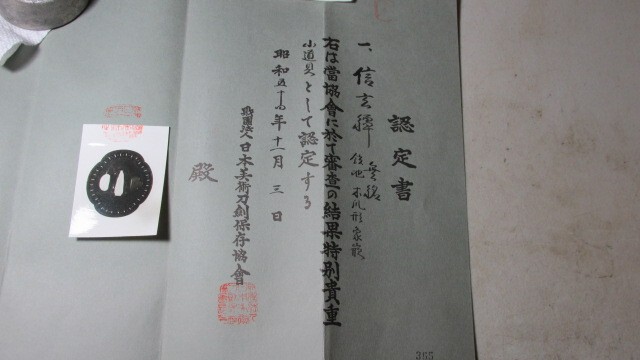 認定書
一、信玄鐔 無銘
鉄地 木瓜形 象嵌
右は當協會に於て審査の結果特別貴重
小道具として認定する
昭和五十 年十一月三日
財団法人 日本美術刀剣保存協會
殿
365